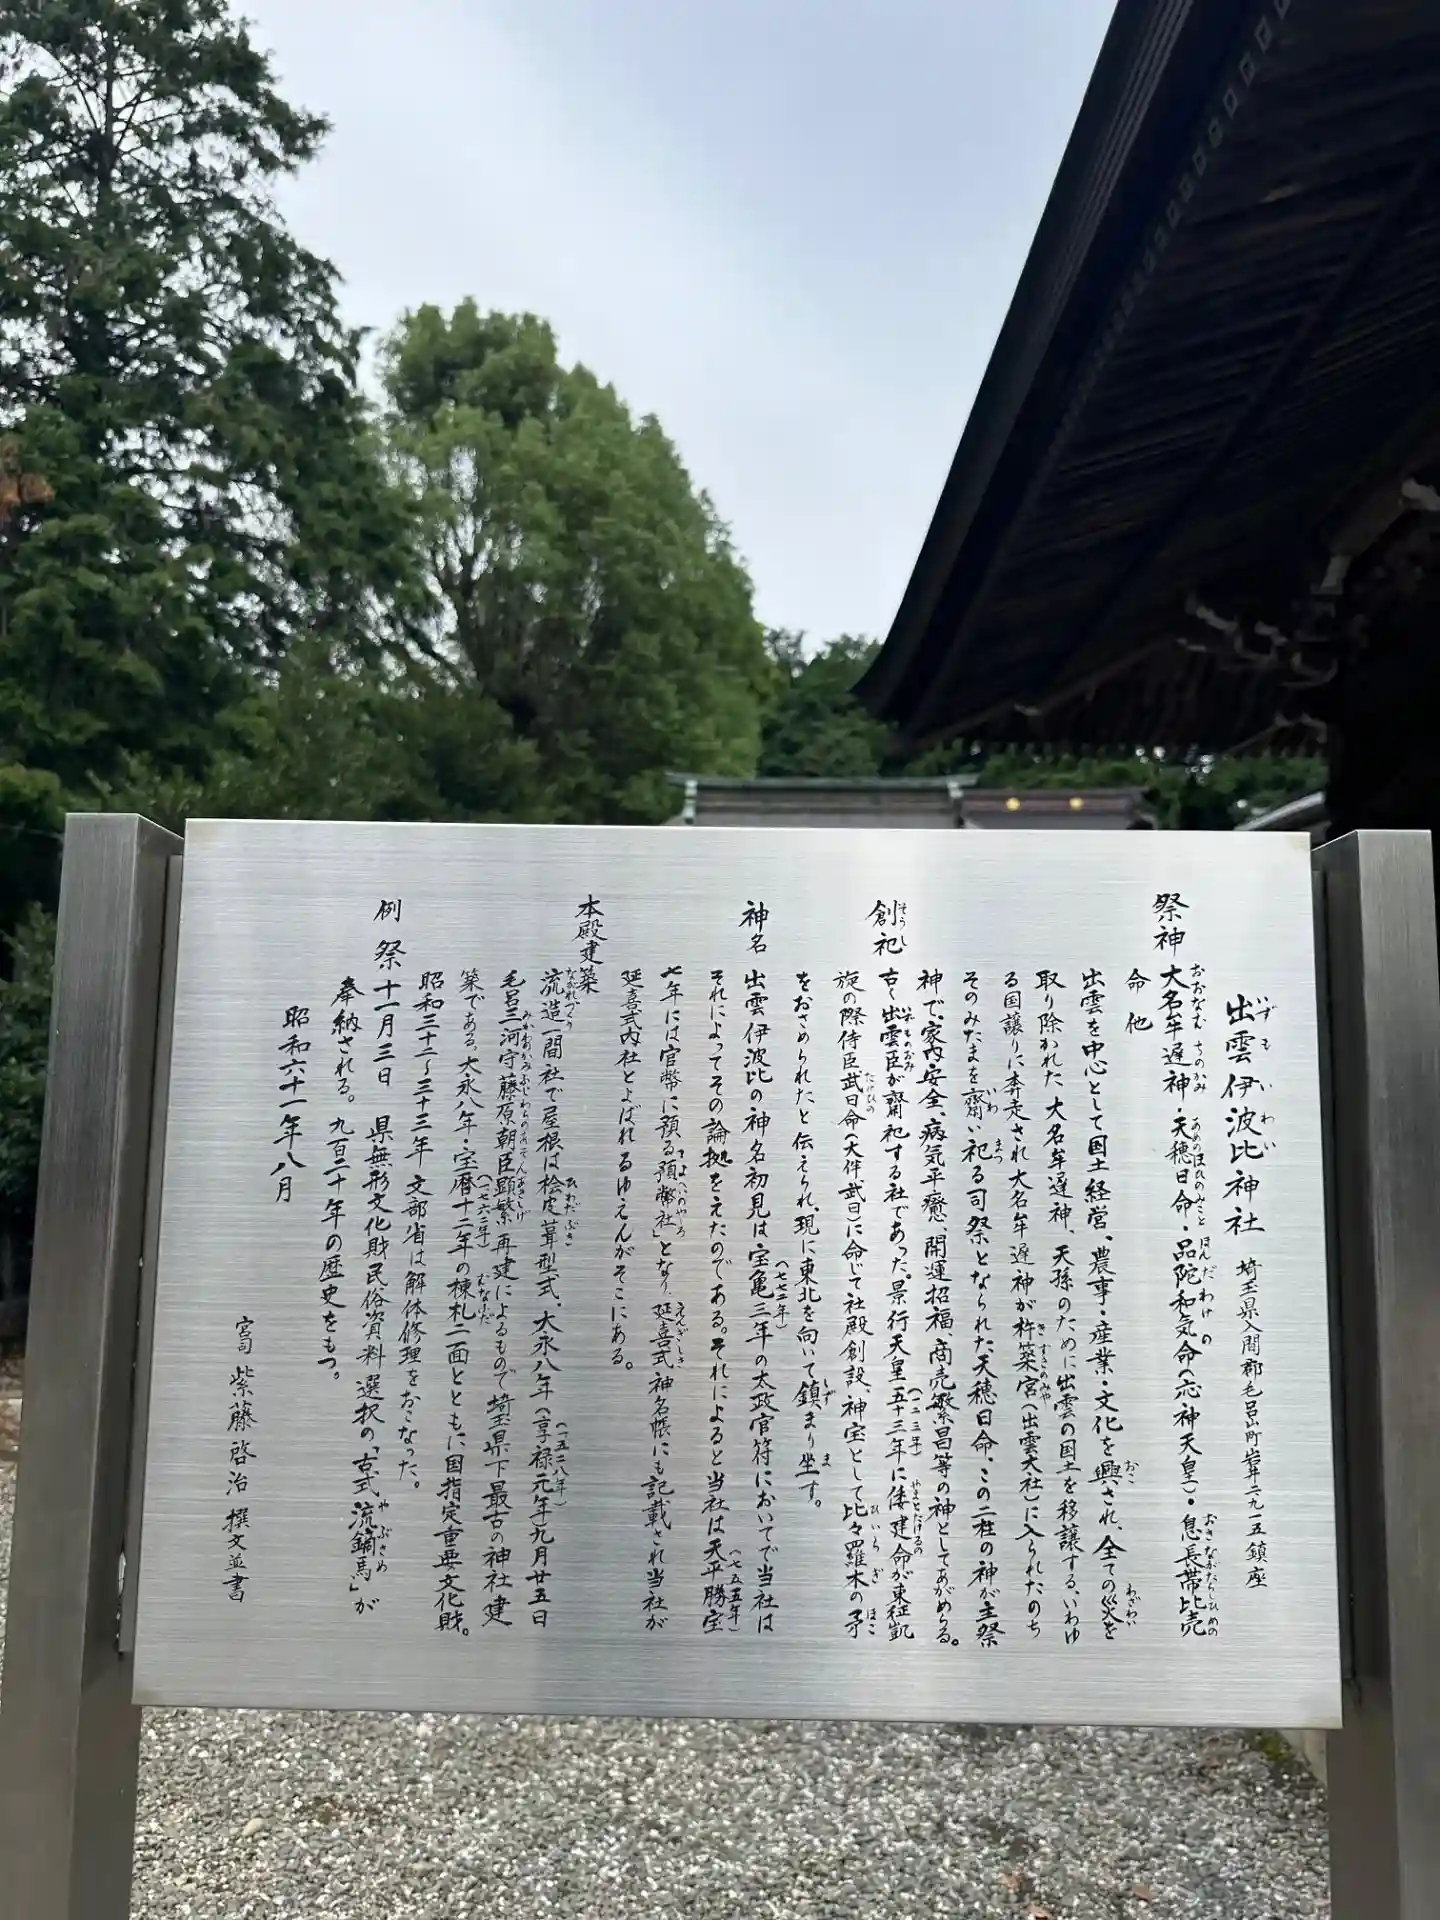 出雲伊波比神社 埼玉県入間郡毛呂山町岩井二九一五鎮座
祭神 大名牟遅神・天穂日命・品陀和気命(応神天皇)・息長帯比売
命他
出雲を中心として国土経営、農事・産業・文化を興され、全ての災を
取り除かれた大名牟遅神、天孫のために出雲の国土を移譲する、いわゆ
る国譲りに奔走され大名牟遅神が杵築宮(出雲大社)に入られたのち
そのみたまを齋い祀る司祭となられた天穂日命、この二柱の神が主祭
神で、家内安全、病気平癒、開運招福、商売繁昌等の神としてあがめらる。
創祀 古く出雲臣が齋祀する社であった。景行天皇五十三年(一二三年)に倭建命が東征凱
旋の際侍臣武日命(大伴武日)に命じて社殿創設、神宝として比々羅木の矛
をおさめられたと伝えられ、現に東北を向いて鎮まり坐す。
神名 出雲伊波比の神名初見は宝亀三年(七七二年)の太政官符においてで当社は
それによってその論拠をえたのである。それによると当社は天平勝宝
七年(七五五年)には官幣に預る預幣社」となり、延喜式神名帳にも記載され当社が
延喜式内社とよばれるゆえんがそこにある。
本殿建築 流造一間社で屋根は桧皮葺型式、大永八年(享禄元年)(一五二八年)九月廿五日
毛呂三河守藤原朝臣顕繁再建によるもので埼玉県下最古の神社建
築である。大永八年・宝暦十二年(一七六二年)の棟札二面とともに国指定重要文化財。
昭和三十二〜三十三年文部省は解体修理をおこなった。
例祭 十一月三日 県無形文化財民俗資料選択の「古式流鏑馬」が
奉納される。九百二十年の歴史をもつ。
昭和六十一年八月
宮司 紫藤啓治 撰文並書